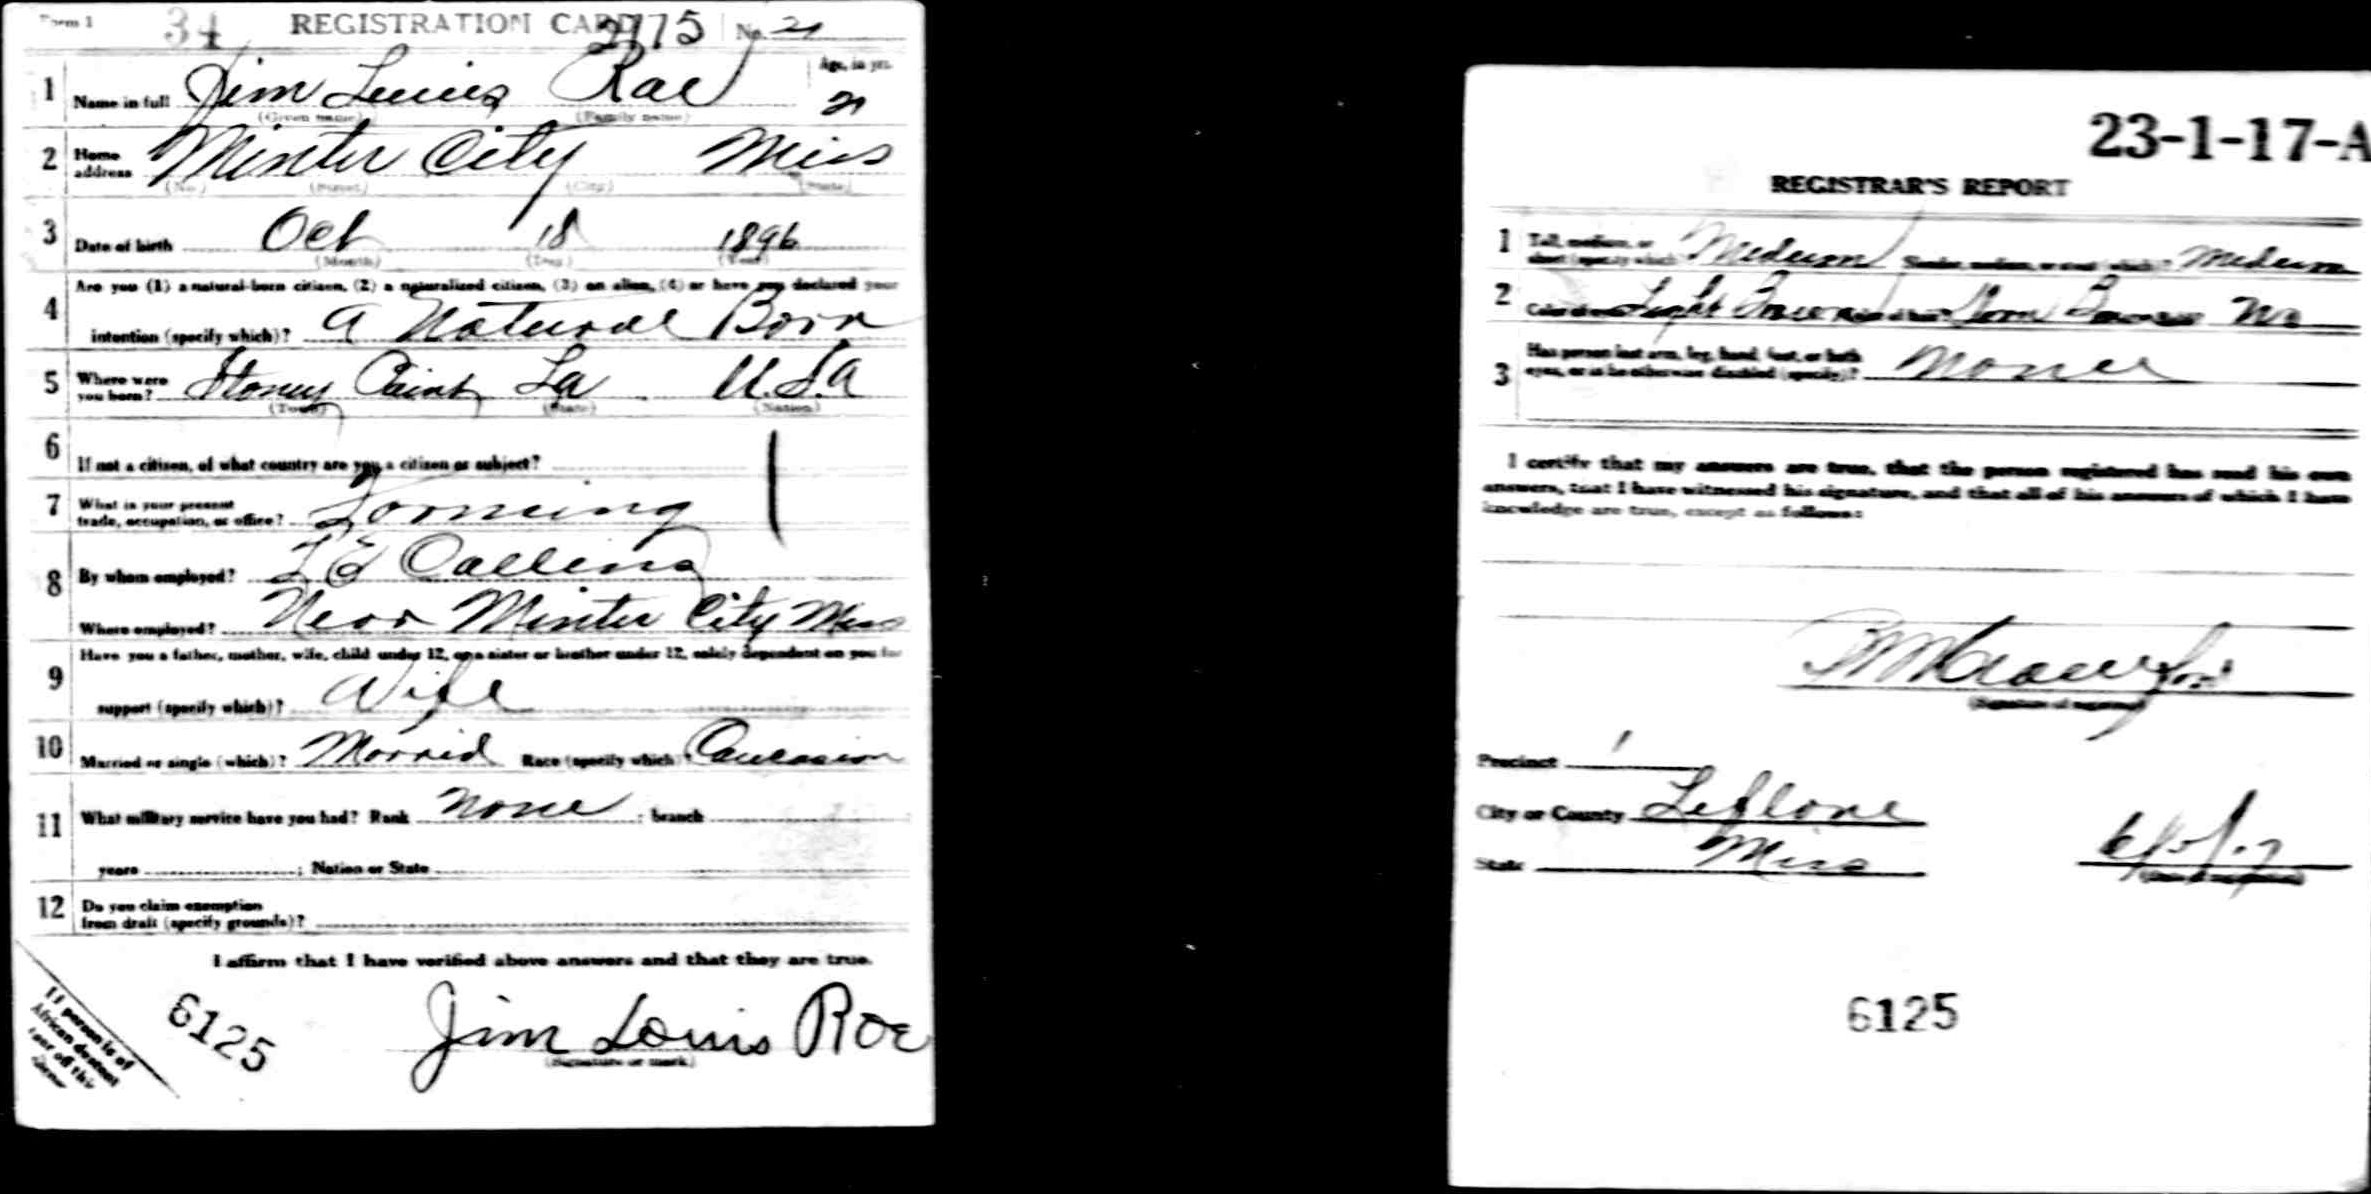 Form 1 34 REGISTRATION CARD 2175 No. 21
1 Name in full Jim Luuis Rae Age, in yrs. 21
(Given name) (Family name)
2 Home address Minter City Miss
(No.) (Street) (City) (State)
3 Date of birth Oct 18 1896
(Month) (Day) (Year)
4 Are you (1) a natural-born citizen, (2) a naturalized citizen, (3) an alien, (4) or have you declared your
intention (specify which)? a Natural Born
5 Where were you born? Stoney Point La U.S.A
(Town) (State) (Nation)
6 If not a citizen, of what country are you a citizen or subject?
7 What is your present trade, occupation, or office? Forming
8 By whom employed? Calling
Where employed? Near Minter City Miss
9 Have you a father, mother, wife, child under 12, or a sister or brother under 12, solely dependent on you for
support (specify which)? Wife
10 Married or single (which)? Morrid Race (specify which)? Caucasion
11 What military service have you had? Rank None ; branch
years ; Nation or State
12 Do you claim exemption
from draft (specify grounds)?
I affirm that I have verified above answers and that they are true.
Jim Louis Roe
(Signature or mark)
If person is of
African descent
tear off this
corner
6125
23-1-17-A
REGISTRAR'S REPORT
1 Tall, medium, or short (specify which)? Medium Slender, medium, or stout (which)? Medium
2 Color of eyes Light Brown Color of hair Brown No
3 Has person lost arm, leg, hand, foot, or both
eyes, or is he otherwise disabled (specify)? None
I certify that my answers are true, that the person registered has read his own
answers, that I have witnessed his signature, and that all of his answers of which I have
knowledge are true, except as follows:
(Signature of registrar)
Precinct 1
City or County Leflore
State Miss 6/5/17
(Date of registration)
6125